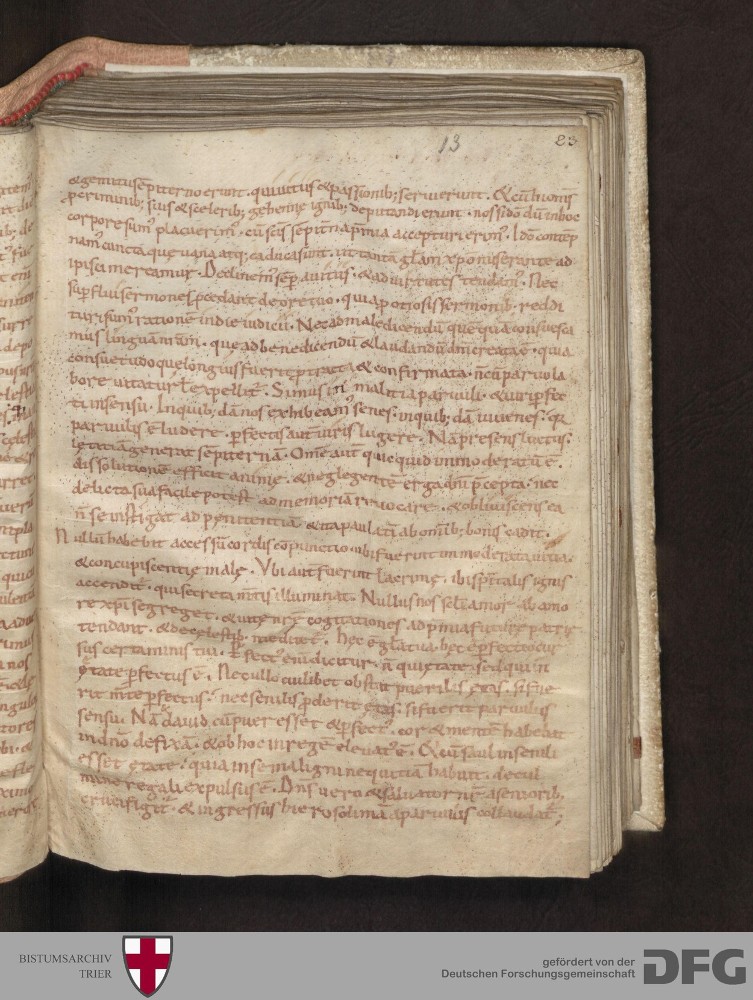 13
23
& gemitus sẽpiterno erunt. qui uitiis & passionib; seruierunt. & cũ huionis
ꝑ criminib; suis & scelerib; gehenne ignib; deputandi erunt. nos si dõ dũ in hoc
corpore sumꝰ placuerimꝰ. cũ scis sepitna p̃mia accepturi erimꝰ. Ido contẽp
nam cuncta que uana atq; caduca sunt. ut tantã gl̃am xp̃o miserante ad
ipisci mereamur. Declinemꝰ sẽp a uitiis. & ad uirtutes tendamꝰ. Nec
suꝑflui sermones p̃cedant de ore tuo. quia p otiosis sermonib. reddi
turi sumꝰ rationẽ in die iudicii. Nec ad maledicendũ que qua consuesca
mus linguam nr̃am. que ad benedicendũ & laudandũ dm̃ creata ẽ. quia
consuetudo que longius fuerit ptracta & confirmata. ñ cũ paruo la
bore uitatur ł expellit̃. Simus in malitia paruuli. & uiri ꝑfec
ti in sensu. In quib; dã nos exhibeamꝰ senes. in quib; dã iuuenes. qr̃
paruulis ẽ ludere. ꝑfectis aut̃ uiris lugere. Nã presens luctus.
lętitiã generat sẽpiternã. Omẽ aut̃ quicquid inmoderatũ ẽ.
dissolutionẽ efficit anime. & neglegentẽ erga dm̃ p̃cepta. nec
delicta sua facile potest ad memoriã reuocare. & obliuiscens ea
ñ se instigat ad penitentiã & ita paulati ab omib; bonis cadit.
Nullũ habebit accessũ cordis cõpunctio. ubi fuerint inmoderata uitia.
& concupiscentię malę. Vbi aut̃ fuerint lacrimę. ibi spr̃italis ignis
accendit̃. qui secreta mtis illuminat. Nullus nos seli amor ab amo
re xp̃i segreget. & uite nr̃ę cogitationes ad p̃mia future patrię
tendant. & de celestib; meditet̃. Hęc ẽ gl̃a tua. hęc ẽ ꝑfectio cur
sus certaminis tui. Ꝑfectꝰ eni dicitur. ñ qui ętate. sed qui ñ
ętate ꝑfectus ẽ. Nec ullo cuilibet obstat puerilis ętas. si fue
rit mte ꝑfectus. nec senilis ꝓderit ętas. si fuerit paruulus
sensu. Nã dauid. cũ puer esset & ꝑfectꝰ. cor & mentẽ habebat
in dñó defixã. & ob hoc in regẽ eleuatꝰ ẽ. & cũ saul in senili
esset ętate. quia in se maligni nequitiã habuit. de cul
mine regali expulsus ẽ. Dñs uero & saluator nr̃. a seniorib;
crucifigit̃. & ingressus hierosolima a paruulis collaudat̃;
BISTUMSARCHIV
TRIER
gefördert von der
Deutschen Forschungsgemeinschaft
DFG